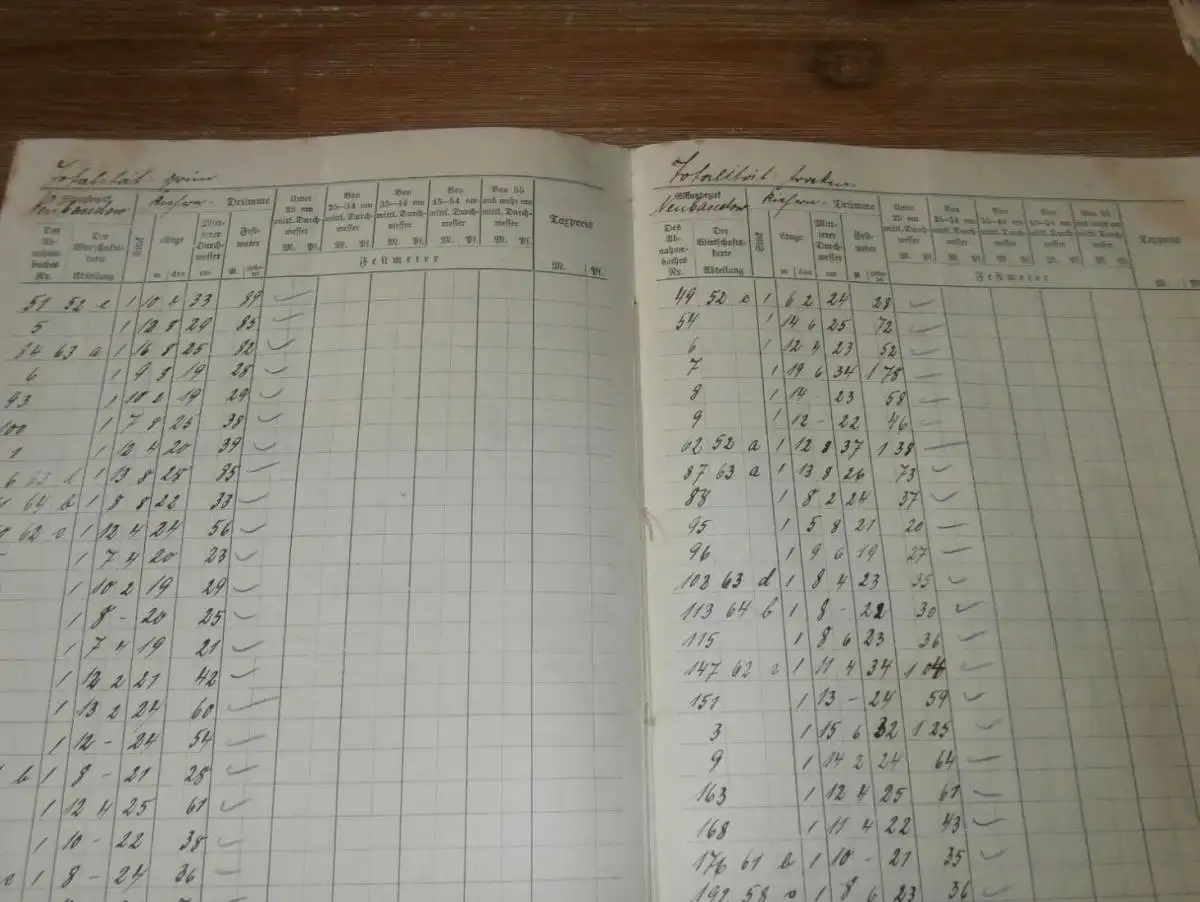 Totalität: grün
Neubandow Kiefern- Drümme
Des Abnahmebuches Nr.
Des Wirtschaftskarte Abteilung
Stück
Länge m dm
Mittlerer Durchmesser cm
Festmeter
Unter 25 cm mittl. Durchmesser M. Pf.
Von 25-34 cm mittl. Durchmesser M. Pf.
Von 35-44 cm mittl. Durchmesser M. Pf.
Von 45-54 cm mittl. Durchmesser M. Pf.
Von 55 und mehr cm mittl. Durchmesser M. Pf.
Festmeter
Taxpreis M. Pf.
51 52 c 1 10 4 33 89
5 1 12 8 29 85
84 63 a 1 16 8 25 82
6 1 9 8 19 28
93 1 10 2 19 29
100 1 7 8 25 38
1 1 12 4 20 39
6 63 d 1 13 8 28 85
64 b 1 8 8 22 33
62 c 1 12 4 24 56
1 7 4 20 23
1 10 2 19 29
1 8 - 20 25
1 7 4 19 21
1 12 2 21 42
1 13 2 24 60
1 12 - 24 54
b 1 8 - 21 28
1 12 4 25 61
1 10 - 22 38
c 1 8 - 24 36
Totalität: trocken
Neubandow Kiefern- Drümme
Des Abnahmebuches Nr.
Des Wirtschaftskarte Abteilung
Stück
Länge m dm
Mittlerer Durchmesser cm
Festmeter
Unter 25 cm mittl. Durchmesser M. Pf.
Festmeter
Taxpreis
49 52 c 1 6 2 24 28
54 1 14 6 25 72
6 1 12 4 23 52
7 1 19 6 34 1 78
8 1 14 - 23 58
9 1 12 - 22 46
62 52 a 1 12 8 37 1 38
87 63 a 1 13 8 26 73
88 1 8 2 24 37
95 1 5 8 21 20
96 1 9 6 19 27
102 63 d 1 8 4 23 35
113 64 b 1 8 - 22 30
115 1 8 6 23 36
147 62 c 1 11 4 34 1 04
151 1 13 - 24 59
3 1 15 6 32 1 25
9 1 14 2 24 64
163 1 12 4 25 61
168 1 11 4 22 43
176 61 b 1 10 - 21 35
192 58 c 1 8 6 23 36